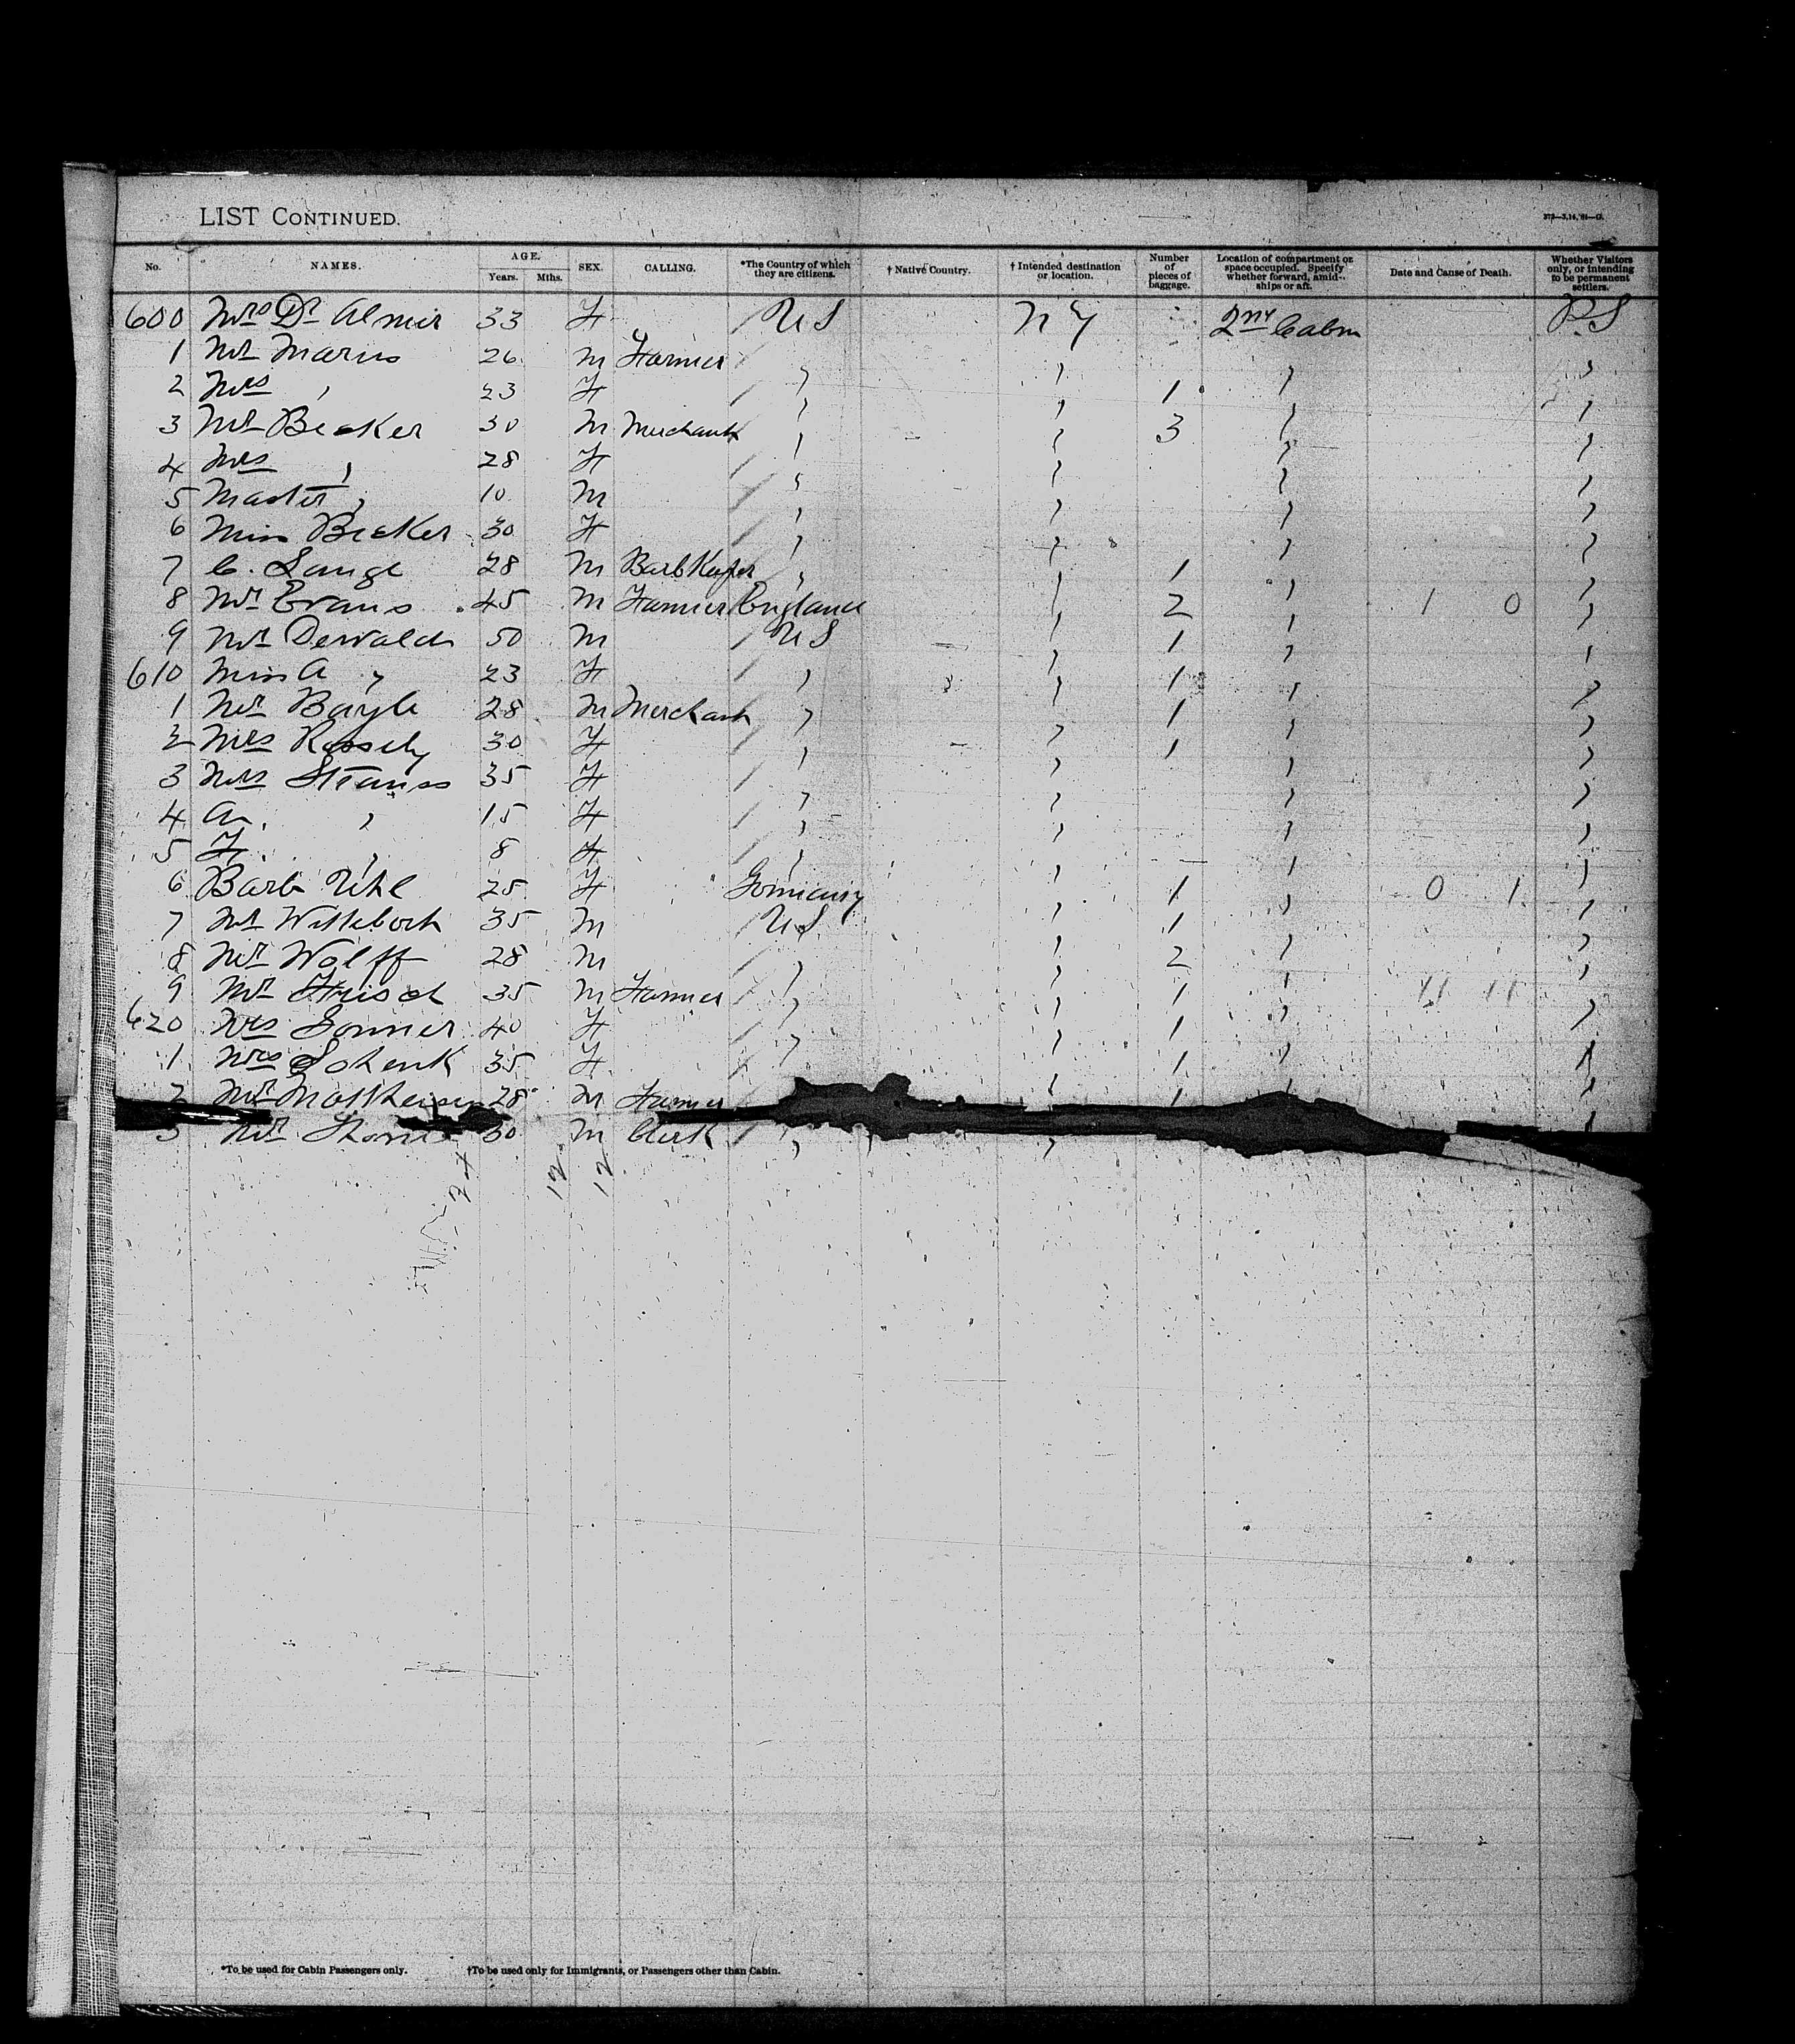 LIST CONTINUED.
373—3,14,'91—G.
No. NAMES. AGE. Years. Mths. SEX. CALLING. *The Country of which they are citizens. † Native Country. † Intended destination or location. Number of pieces of baggage. Location of compartment or space occupied. Specify whether forward, amid-ships or aft. Date and Cause of Death. Whether Visitors only, or intending to be permanent settlers.
600 Mrs Dr Almir 33 F U S N Y 2nd Cabin P.S
1 Mr Marus 26 M Farmer
2 Mrs " 23 F " " 1 " "
3 Mr Becker 30 M Merchant " " 3 " "
4 Mrs " 28 F " " " "
5 Master " 10 M " " " "
6 Miss Becker 30 F " " " "
7 C. Lange 28 M " " 1 " "
8 Mr Evans 45 M Farmer England " 2 " 1 0 "
9 Mr Dewald 50 M U S " 1 " "
610 Miss A " 23 F " " 1 " "
1 Mr Bayle 28 M Merchant " " 1 " "
2 Mrs 30 F " " 1 " "
3 Mrs Strauss 35 F " " " "
4 A. " 15 F " " " "
5 F. " 8 F " " " "
6 Barb 25 F Germany " 1 " 0 1 "
7 Mr 35 M U.S. " 1 " "
8 Mr Wolff 28 M " " 2 " "
9 Mr Frisch 35 M Farmer " " 1 " "
620 Mrs 40 F " " 1 " "
1 Mrs Schenk 35 F " " 1 " "
2 Mr 28 M Farmer " 1 " "
3 Mr 30 M Clerk " " "
24 12 12
*To be used for Cabin Passengers only. †To be used only for Immigrants, or Passengers other than Cabin.